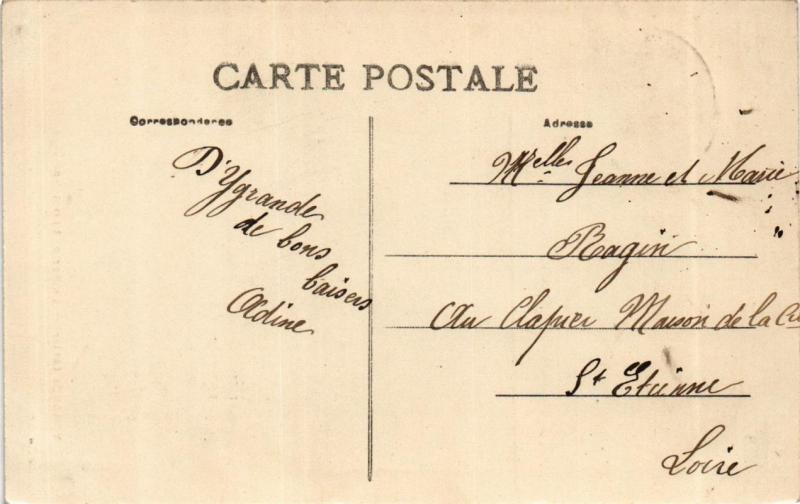 CARTE POSTALE
Correspondance
D'Ygrande
de bons
baisers
Adine
Adresse
Melles Jeanne et Marie
Ragin
Au Clapier Maison de la
St Etienne
Loire